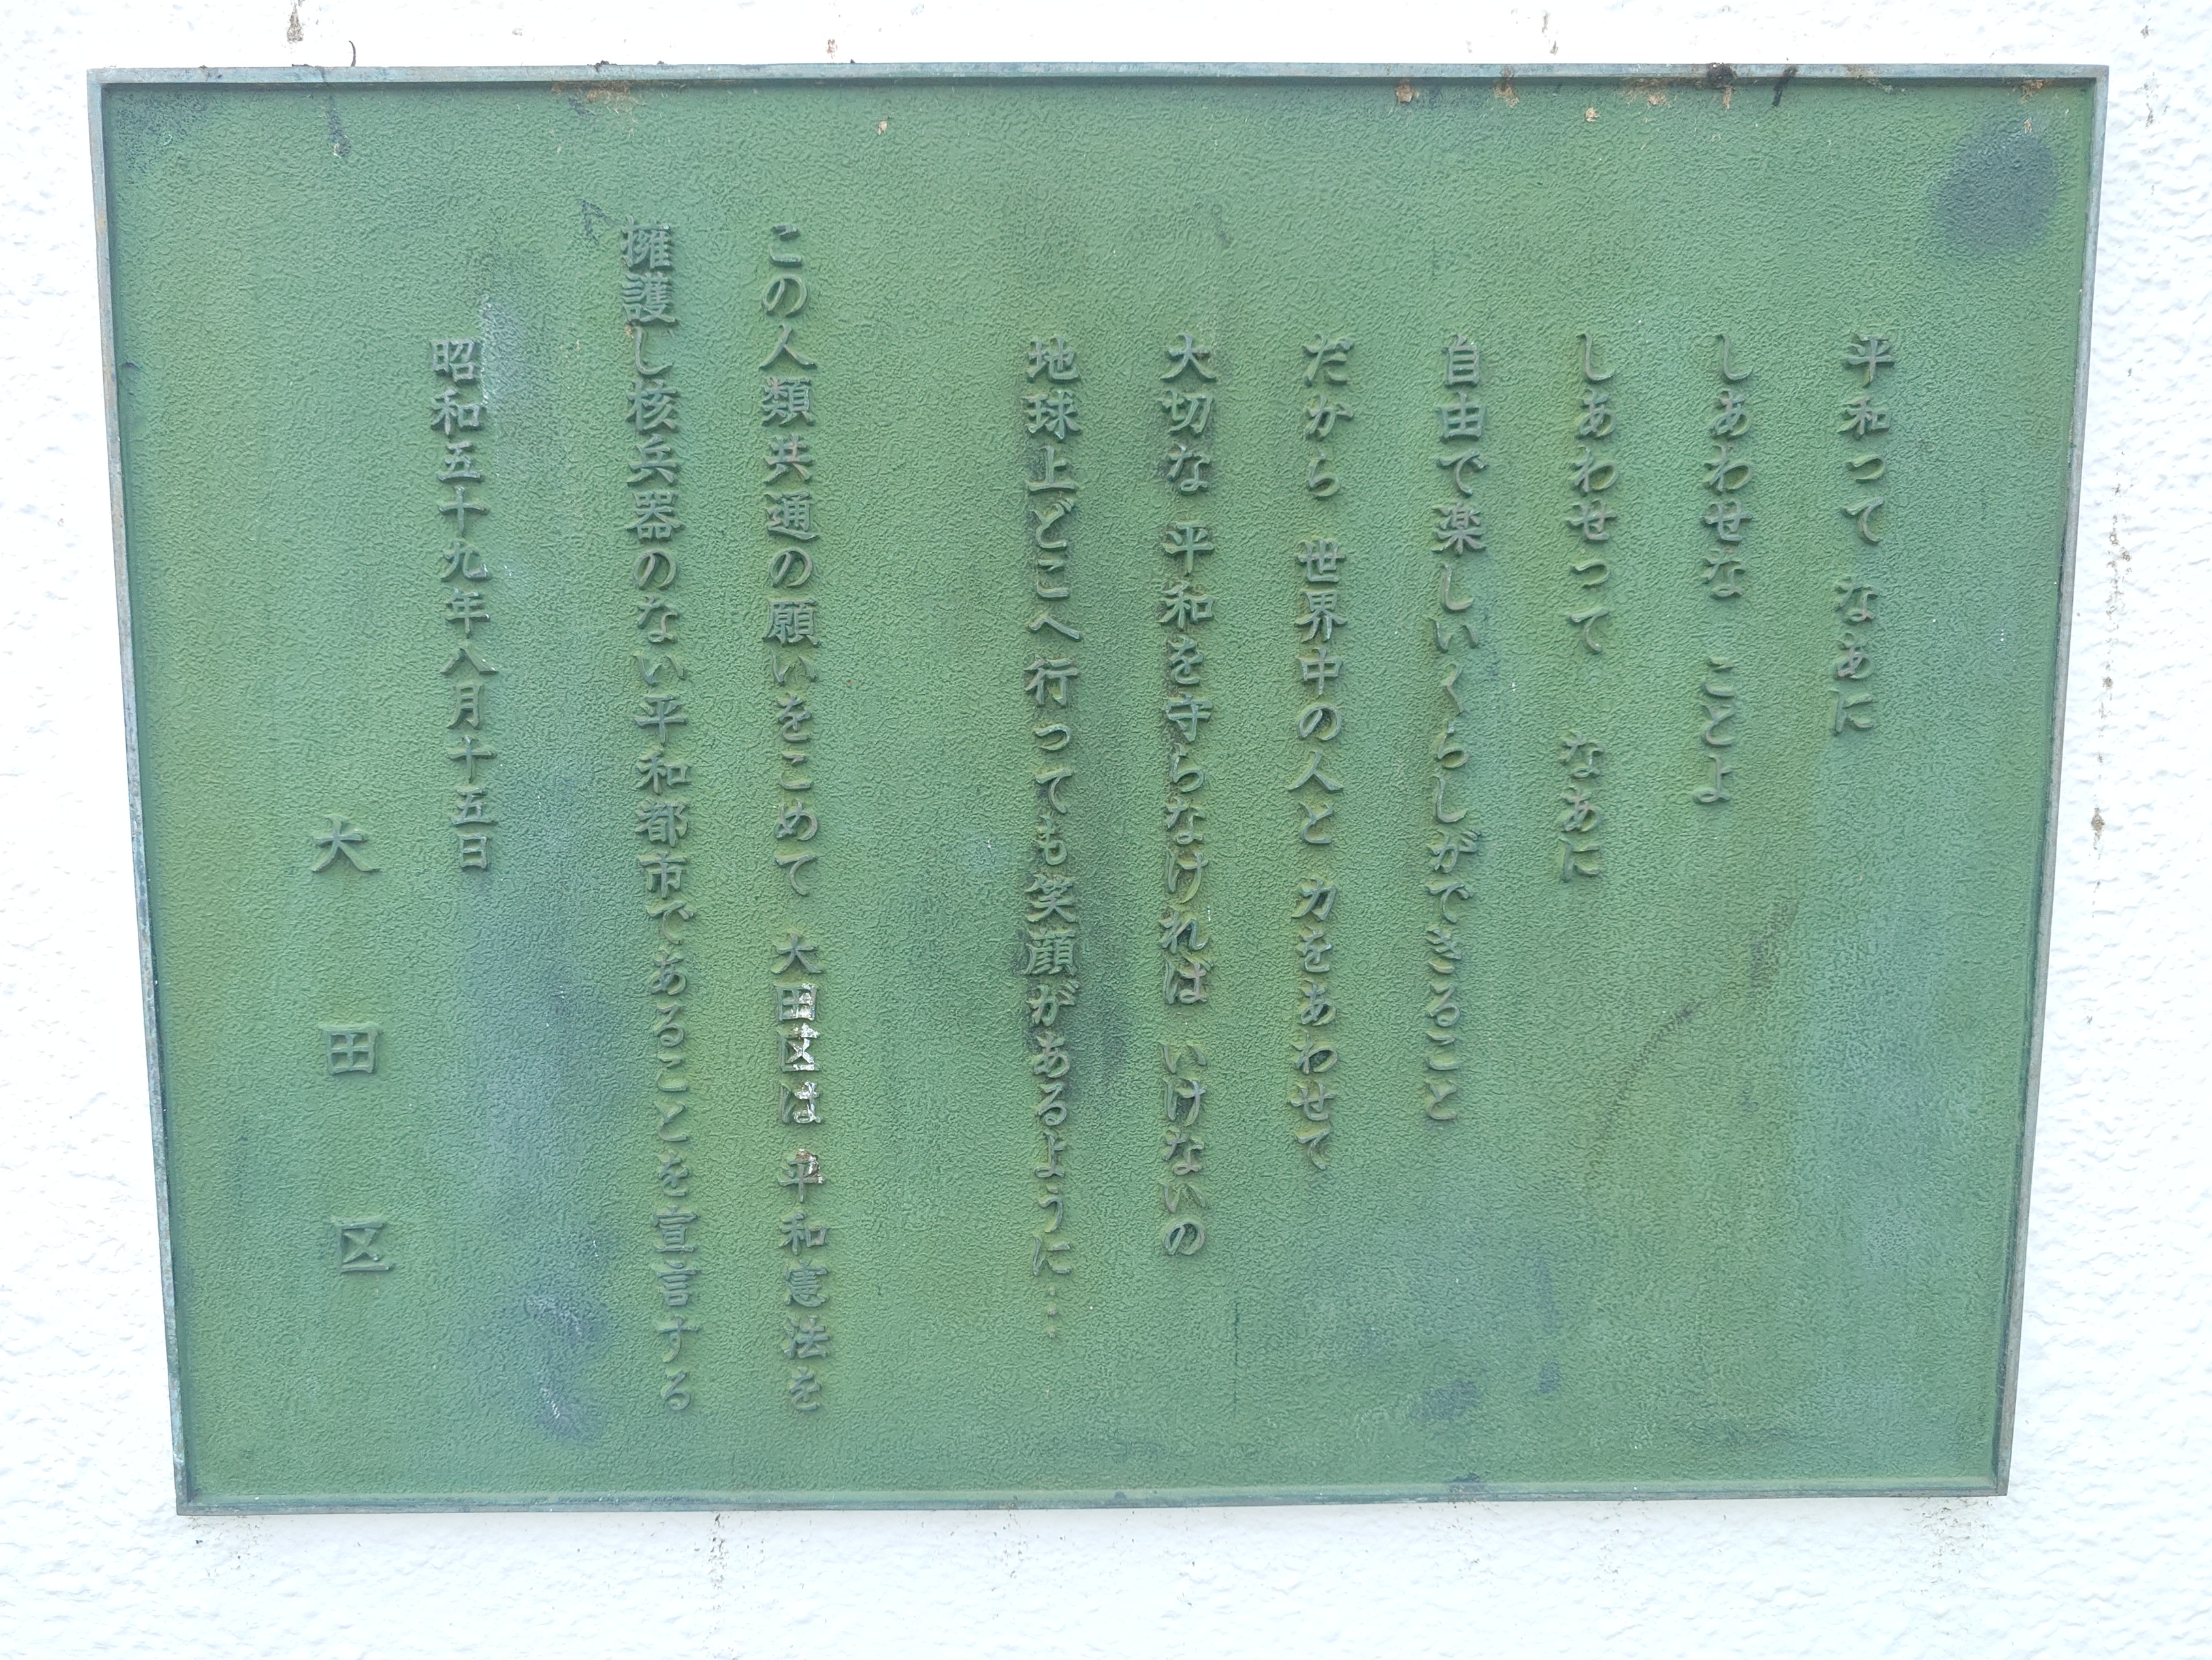 平和って なあに
しあわせな ことよ
しあわせって なあに
自由で楽しいくらしができること
だから 世界中の人と 力をあわせて
大切な 平和を守らなければ いけないの
地球上どこへ行っても笑顔があるように…
この人類共通の願いをこめて 大田区は 平和憲法を
擁護し核兵器のない平和都市であることを宣言する
昭和五十九年八月十五日
大田区